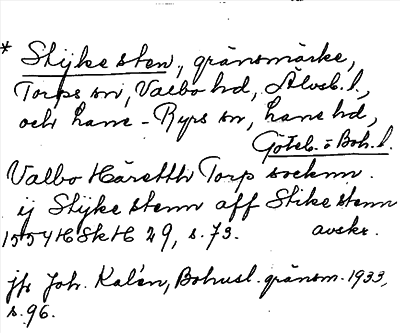 * Stijke sten, gränsmärke,
Torps sn, Valbo hd, Älvsb. l.,
och Lane-Ryrs sn, Lane hd,
Göteb. o Boh. l.
Valbo Häretth Torp socknn.
ij Stijke stenn aff Stike stenn
1554 HSkH 29, s. 73. avskr.
jfr Joh. Kalén, Bohusl. gränsm. 1933,
s. 96.